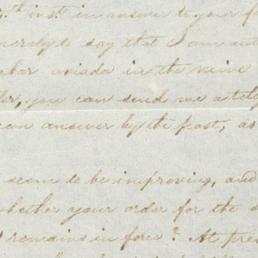 th inst in answer to your f
merely to say that I am aut
in the mine
you can send me a tele
can answer by the post, as
seem to be improving, and
whether your order for the
remains in force? At pres